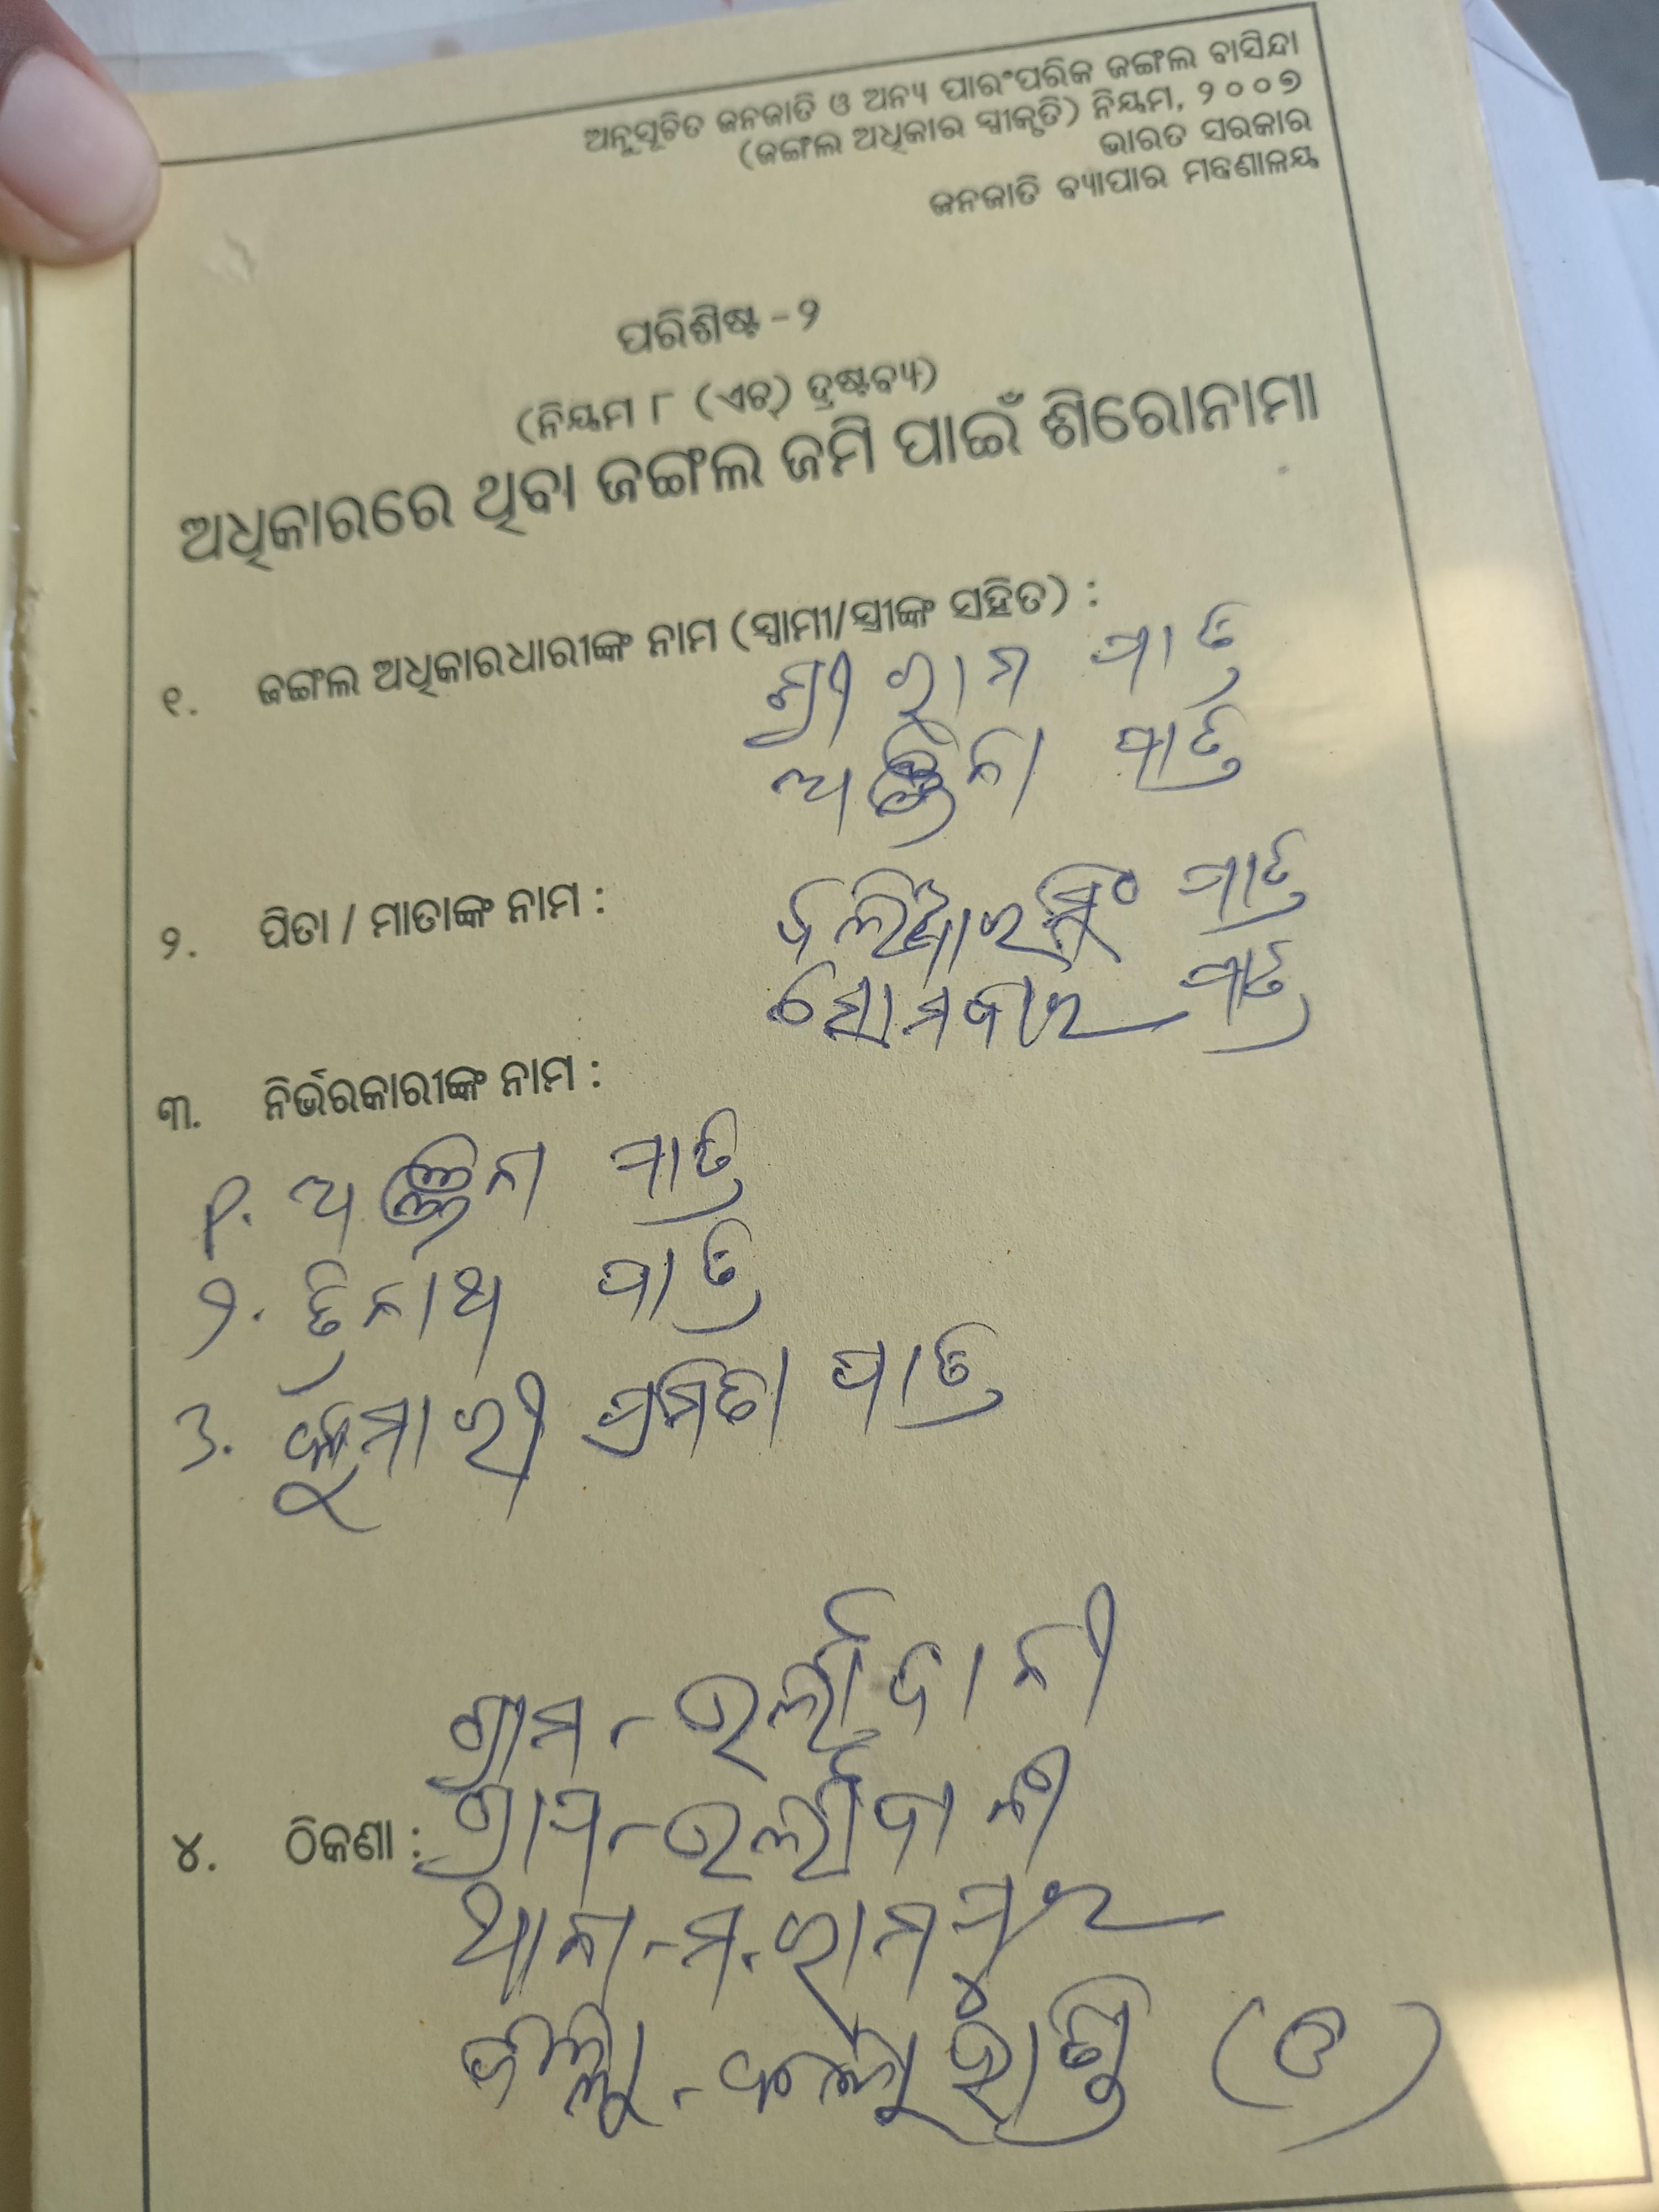 ଅନୁସୂଚିତ ଜନଜାତି ଓ ଅନ୍ୟ ପାରଂପରିକ ଜଙ୍ଗଲ ବାସିନ୍ଦା
(ଜଙ୍ଗଲ ଅଧିକାର ସ୍ୱୀକୃତି) ନିୟମ, ୨୦୦୭
ଭାରତ ସରକାର
ଜନଜାତି ବ୍ୟାପାର ମନ୍ତ୍ରଣାଳୟ
ପରିଶିଷ୍ଟ - ୨
(ନିୟମ ୮ (ଏଚ୍) ଦ୍ରଷ୍ଟବ୍ୟ)
ଅଧିକାରରେ ଥିବା ଜଙ୍ଗଲ ଜମି ପାଇଁ ଶିରୋନାମା
୧. ଜଙ୍ଗଲ ଅଧିକାରଧାରୀଙ୍କ ନାମ (ସ୍ୱାମୀ/ସ୍ତ୍ରୀଙ୍କ ସହିତ) :
ଶ୍ରୀ ରାମ ପାତ୍ର
ପାତ୍ର
୨. ପିତା / ମାତାଙ୍କ ନାମ :
ପାତ୍ର
ସୋମବାର ପାତ୍ର
୩. ନିର୍ଭରକାରୀଙ୍କ ନାମ :
୧. ପାତ୍ର
୨. ତ୍ରିନାଥ ପାତ୍ର
3. କୁମାରୀ ପ୍ରମିତା ପାତ୍ର
ଗ୍ରାମ -
୪. ଠିକଣା : ଗ୍ରାପ -
ଥାନା - ମ. ରାମପୁର
ଜିଲ୍ଲା - କଳାହାଣ୍ଡି (ଓ)